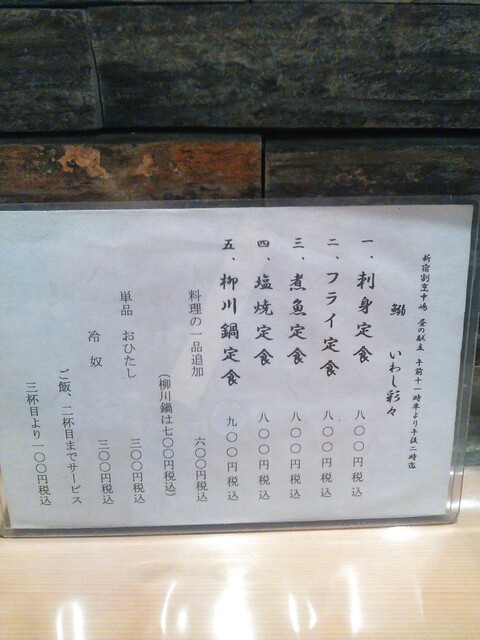 新宿割烹中嶋 昼の献立 午前十一時半より午後二時迄
鰯 いわし彩々
一、刺身定食 八〇〇円税込
二、フライ定食 八〇〇円税込
三、煮魚定食 八〇〇円税込
四、塩焼定食 八〇〇円税込
五、柳川鍋定食 九〇〇円税込
料理の一品追加 六〇〇円税込
(柳川鍋は七〇〇円税込)
単品 おひたし 三〇〇円税込
冷奴 三〇〇円税込
ご飯、二杯目までサービス
三杯目より一〇〇円税込